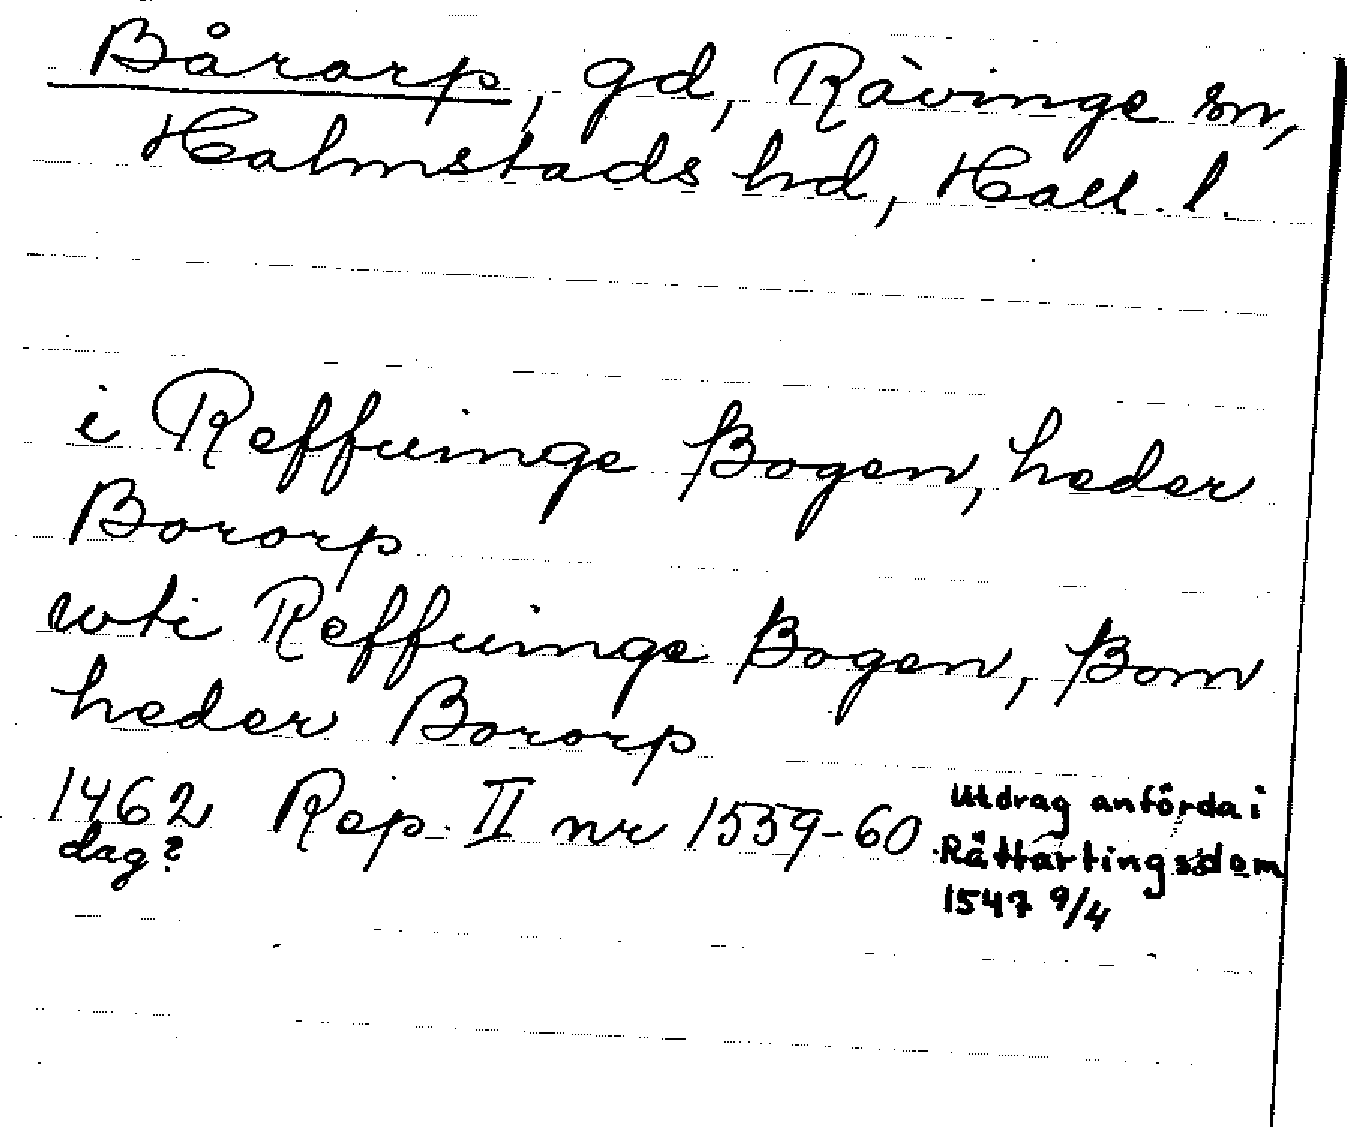 Bårarp, gd, Råvinge sn,
Halmstads hd, Hall. l.
i Reffuinge Sogen, heder
Bororp
wti Reffuinge Sogen, Som
heder Bororp
1462 Rep. II nr 1559-60 Utdrag anförda i
dag? Rättartingsdom
1547 9/4